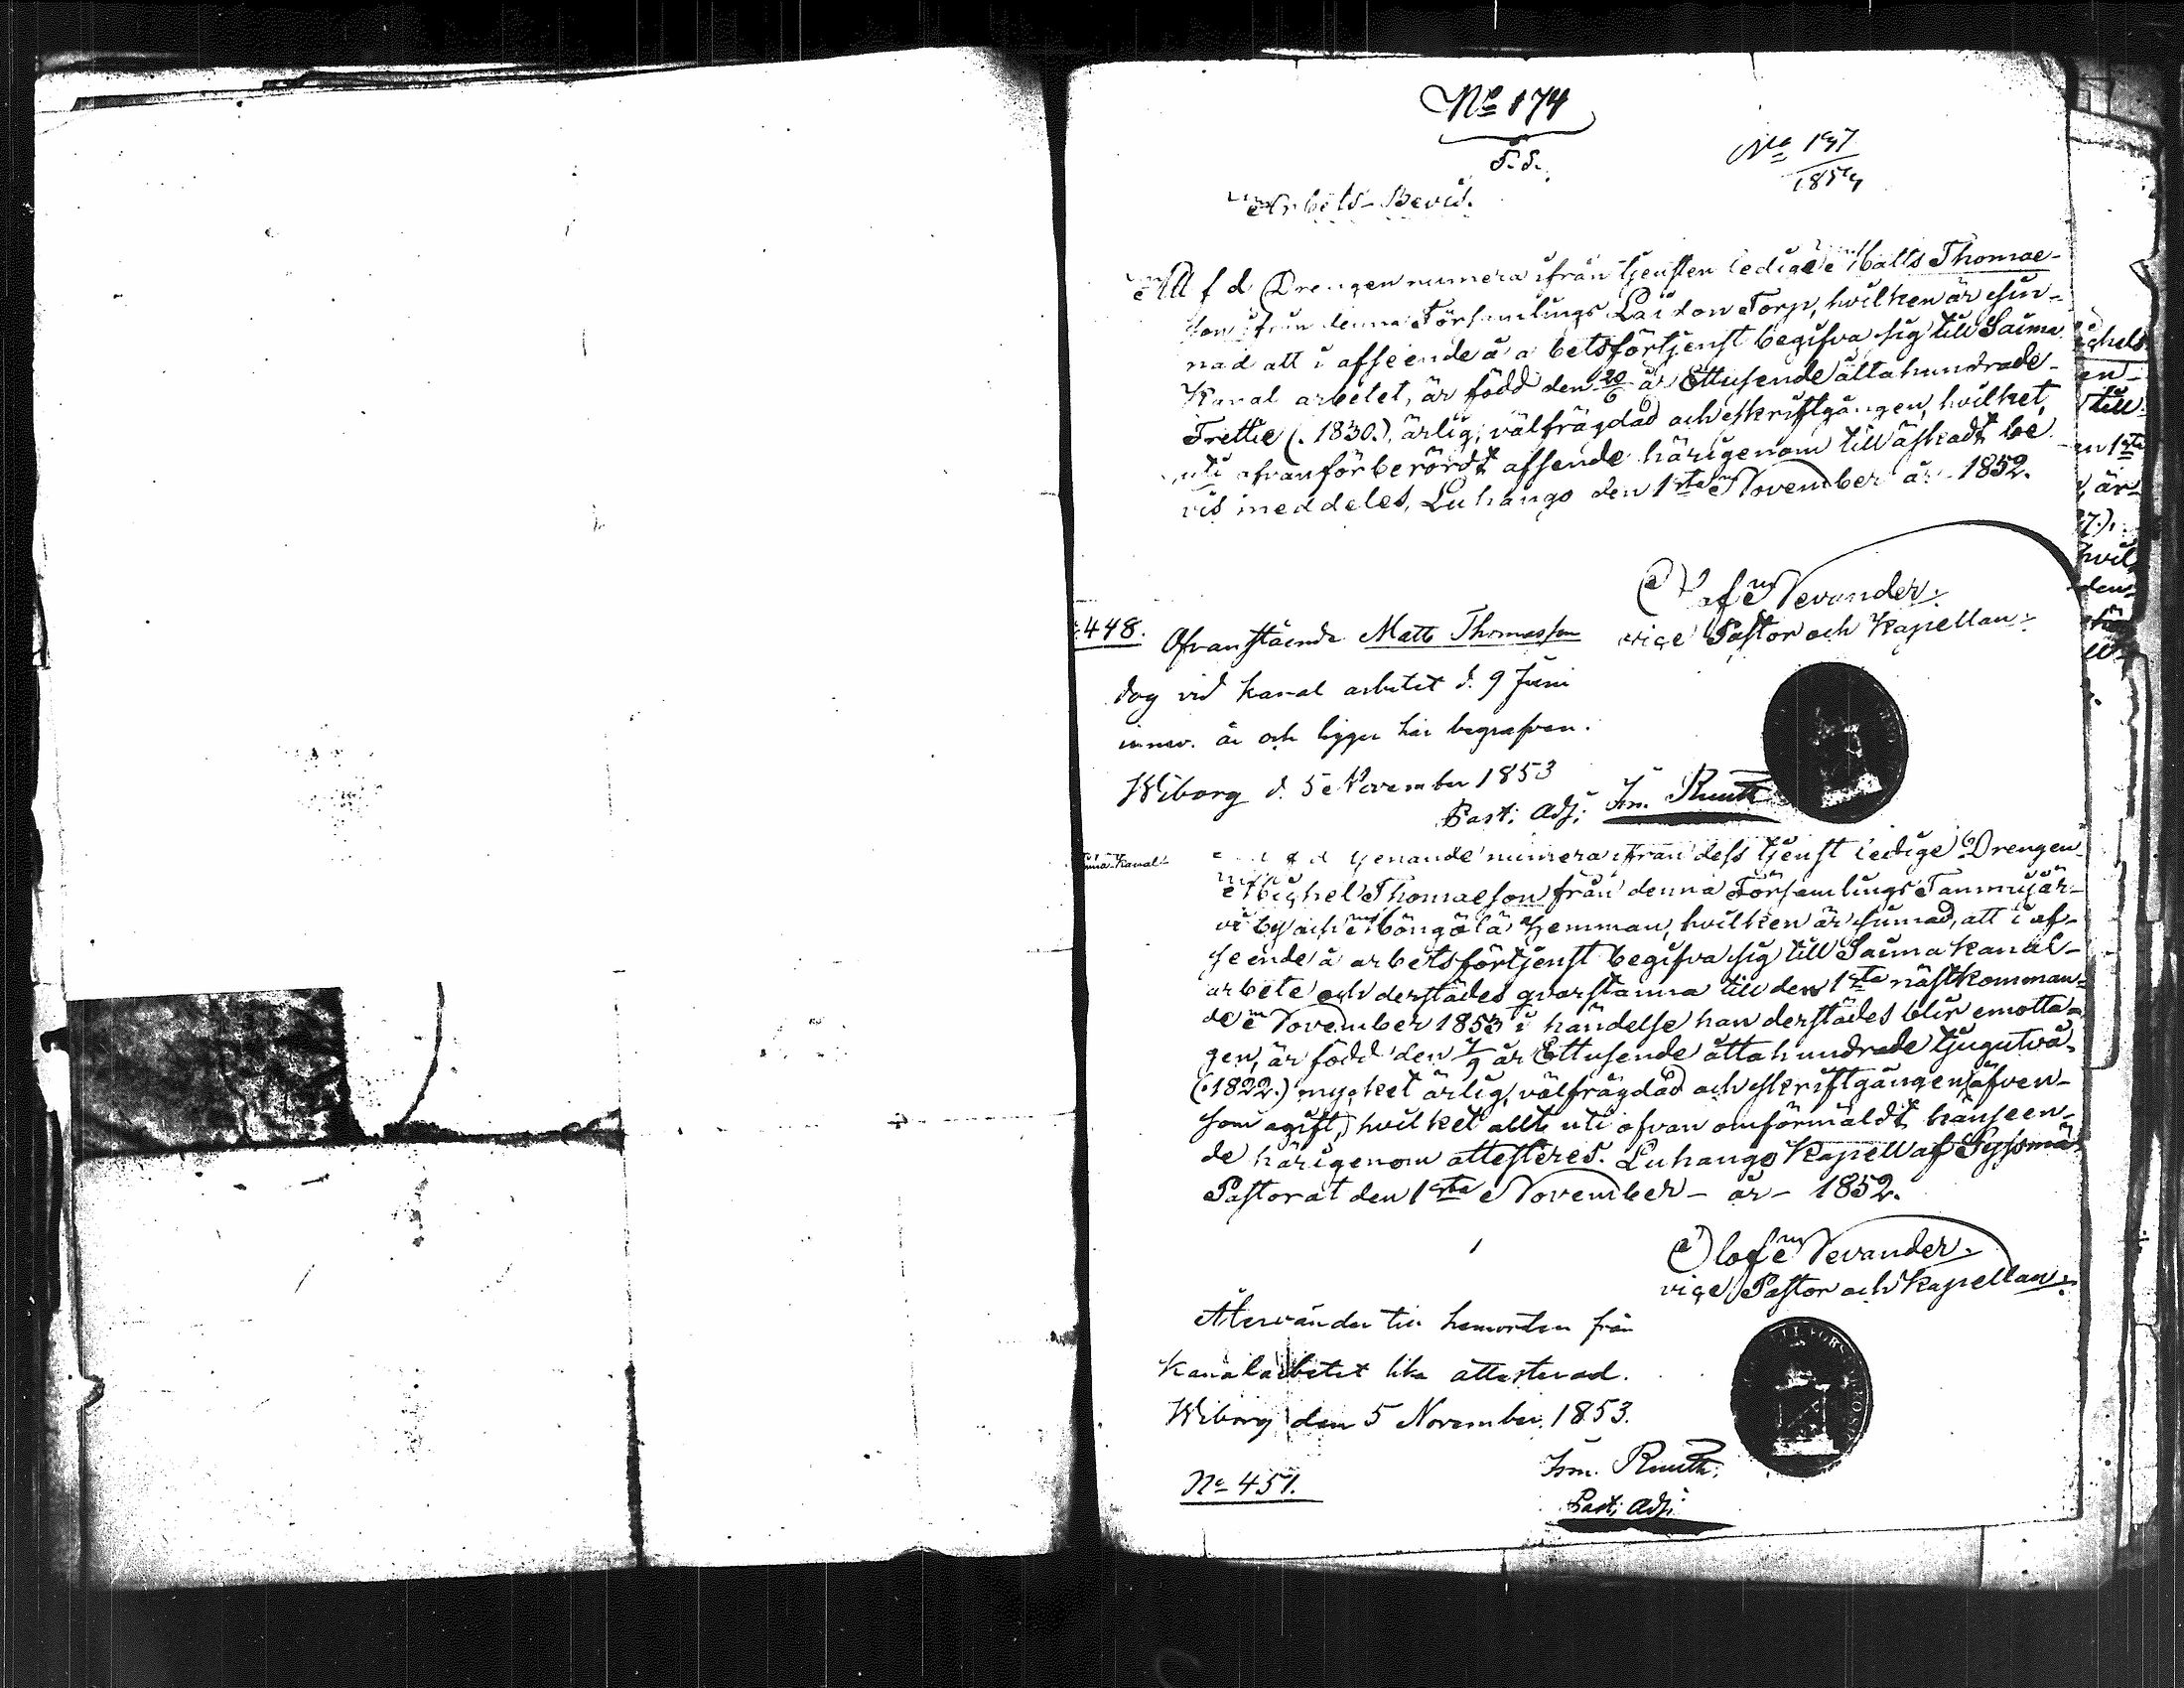 No 174
S. S.
No 197
1854
Arbets-Bevis.
Att f d Drengen numera ifrån tjensten ledige Matts Thomae-
son ifrån denna Församlings Laiton Torp, hvilken är sin-
nad att i afseende å arbetsförtjenst begifva sig till Saima
Kanal arbetet, är född den 20/6 år Ettusende åttahundrade-
Trettie (.1830.), ärlig, välfrägdad och skriftgången, hvilket,
uti ofvanförberördt afseende härigenom till äskadt be
vis meddeles, Luhango den 1sta November år 1852.
Olof Nevander.
vice Pastor och Kapellan.
448. Ofvanstående Matts Thomasson
dog vid kanal arbetet d. 9 Juni
innev. år och ligger här begrafven.
Wiborg d. 5 November 1853
Past. Adj. Im. Ruuth
Kanal
genande numera ifrån dess tjenst ledige Drengen
Michel Thomaeson från denna Församlings Tammijär-
vi by och Böngölä Hemman, hvilken är sinnad, att i af-
seende å arbetsförtjenst begifva sig till Saima kanal-
arbete och derstädes qvarstanna till den 1sta nästkomman-
de November 1853 i händelse han derstädes blir emotta-
gen, är född den 7/9 år Ettusende åttahundrade tjugutvå-
(.1822.) mycket ärlig, välfrägdad och skriftgången, äfven-
som ogift, hvilket allt uti ofvan omförmäldt hänseen-
de härigenom attesteres. Luhango Kapell af Sysmä
Pastorat den 1sta November - år - 1852.
Olof Nevander.
vice Pastor och Kapellan.
Återvänder till hemorten från
Kanalarbetet lika attesterad.
Wiborg den 5 November 1853.
Im. Ruuth.
Past. Adj.
No 451.